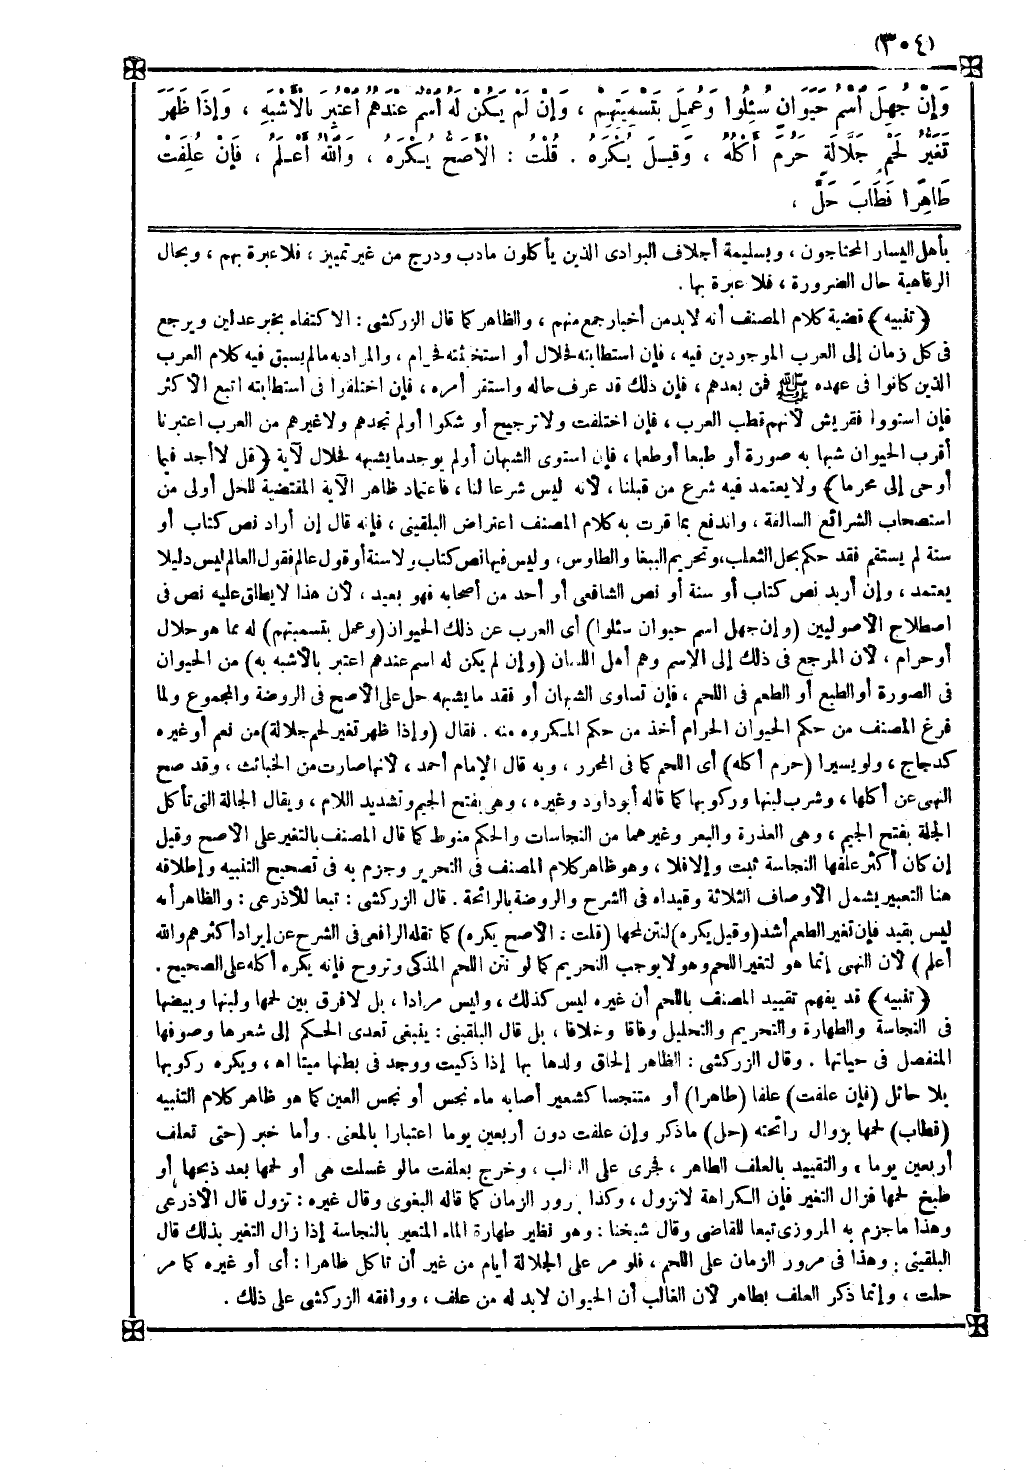 (٣٠٤)
وَإِنْ جُهِلَ اسْمُ حَيَوَانٍ سُئِلُوا وَعُمِلَ بِتَسْمِيَتِهِمْ ، وَإِنْ لَمْ يَكُنْ لَهُ اسْمٌ عِنْدَهُمْ اعْتُبِرَ بِالْأَشْبَهِ ، وَإِذَا ظَهَرَ
تَغَيُّرُ لَحْمِ جَلَّالَةٍ حَرُمَ أَكْلُهُ ، وَقِيلَ يُكْرَهُ . قُلْتُ : الْأَصَحُّ يُكْرَهُ ، وَاللَّهُ أَعْلَمُ ، فَإِنْ عُلِفَتْ
طَاهِرًا فَطَابَ حَلَّ ،
بأهل اليسار المحتاجون ، وبسليمة أجلاف البوادى الذين يأكلون مادب ودرج من غير تمييز ، فلا عبرة بهم ، وبحال
الرفاهية حال الضرورة ، فلا عبرة بها .
﴿ تنبيه ﴾ قضية كلام المصنف أنه لابد من أخبار جمع منهم ، والظاهر كما قال الزركشى : الاكتفاء بخبر عدلين ويرجع
فى كل زمان إلى العرب الموجودين فيه ، فإن استطابته فحلال أو استخبثته فحرام ، والمراد به مالم يسبق فيه كلام العرب
الذين كانوا فى عهده ﷺ فمن بعدهم ، فإن ذلك قد عرف حاله واستقر أمره ، فإن اختلفوا فى استطابته اتبع الأكثر
فإن استووا فقريش لأنهم قطب العرب ، فإن اختلفت ولا ترجيح أو شكوا أو لم نجدهم ولا غيرهم من العرب اعتبرنا
أقرب الحيوان شبها به صورة أو طبعا أو طعما ، فإن استوى الشبهان أو لم يوجد ما يشبهه فحلال لآية ﴿ قل لا أجد فيما
أوحى إلى محرما ﴾ ولا يعتمد فيه شرع من قبلنا ، لأنه ليس شرعا لنا ، فاعتماد ظاهر الآية المقتضية للحل أولى من
استصحاب الشرائع السالفة ، واندفع بما قرت به كلام المصنف اعتراض البلقينى ، فإنه قال إن أراد نص كتاب أو
سنة لم يستقم فقد حكم بحل الثعلب ، وتحريم الببغا والطاوس ، وليس فيها نص كتاب ولا سنة أو قول عالم فقول العالم ليس دليلا
يعتمد ، وإن أريد نص كتاب أو سنة أو نص الشافعى أو أحد من أصحابه فهو بعيد ، لأن هذا لا يطلق عليه نص فى
اصطلاح الأصوليين (وإن جهل اسم حيوان سئلوا) أى العرب عن ذلك الحيوان (وعمل بتسميتهم) له مما هو حلال
أو حرام ، لأن المرجع فى ذلك إلى الاسم وهم أهل اللسان (وإن لم يكن له اسم عندهم اعتبر بالأشبه به) من الحيوان
فى الصورة أو الطبع أو الطعم فى اللحم ، فإن تساوى الشبهان أو فقد ما يشبهه حل على الأصح فى الروضة والمجموع ولما
فرغ المصنف من حكم الحيوان الحرام أخذ من حكم المكروه منه . فقال (وإذا ظهر تغير لحم جلالة) من نعم أو غيره
كدجاج ، ولو يسيرا (حرم أكله) أى اللحم كما فى المحرر ، وبه قال الإمام أحمد ، لأنها صارت من الخبائث ، وقد صح
النهى عن أكلها ، وشرب لبنها وركوبها كما قاله أبو داود وغيره ، وهى بفتح الجيم وتشديد اللام ، ويقال الجالة التى تأكل
الجلة بفتح الجيم ، وهى العذرة والبعر وغيرهما من النجاسات والحكم منوط كما قال المصنف بالتغير على الأصح وقيل
إن كان أكثر علفها النجاسة ثبت وإلا فلا ، وهو ظاهر كلام المصنف فى التحرير وجزم به فى تصحيح التنبيه وإطلاقه
هنا التعبير يشمل الأوصاف الثلاثة وقيداه فى الشرح والروضة بالرائحة . قال الزركشى : تبعا للأذرعى : والظاهر أنه
ليس بقيد فإن تغير الطعم أشد (وقيل يكره) لنتن لحمها (قلت : الأصح يكره) كما نقله الرافعى فى الشرح عن إيراد أكثرهم والله
أعلم) لأن النهى إنما هو لتغير اللحم وهو لا يوجب التحريم كما لو نتن اللحم المذكى وتروح فإنه يكره أكله على الصحيح .
﴿ تنبيه ﴾ قد يفهم تقييد المصنف باللحم أن غيره ليس كذلك ، وليس مرادا ، بل لا فرق بين لحمها ولبنها وبيضها
فى النجاسة والطهارة والتحريم والتحليل وفاقا وخلافا ، بل قال البلقينى : ينبغى تعدى الحكم إلى شعرها وصوفها
المنفصل فى حياتها . وقال الزركشى : الظاهر إلحاق ولدها بها إذا ذكيت ووجد فى بطنها ميتا اه ، ويكره ركوبها
بلا حائل (فإن علفت) علفا (طاهرا) أو متنجسا كشعير أصابه ماء نجس أو نجس العين كما هو ظاهر كلام التنبيه
(فطاب) لحمها بزوال رائحته (حل) ماذكر وإن علفت دون أربعين يوما اعتبارا بالمعنى . وأما خبر (حتى تعلف
أربعين يوما ، والتقييد بالعلف الطاهر ، فجرى على الغالب ، وخرج بعلفت مالو غسلت هى أو لحمها بعد ذبحها أو
طبخ لحمها فزال التغير فإن الكراهة لا تزول ، وكذا بمرور الزمان كما قاله البغوى وقال غيره : تزول قال الأذرعى
وهذا ماجزم به المروزى تبعا للقاضى وقال شيخنا : وهو نظير طهارة الماء المتغير بالنجاسة إذا زال التغير بذلك قال
البلقينى : وهذا فى مرور الزمان على اللحم ، فلو مر على الجلالة أيام من غير أن تأكل طاهرا : أى أو غيره كما مر
حلت ، وإنما ذكر العلف بطاهر لأن الغالب أن الحيوان لابد له من علف ، ووافقه الزركشى على ذلك .